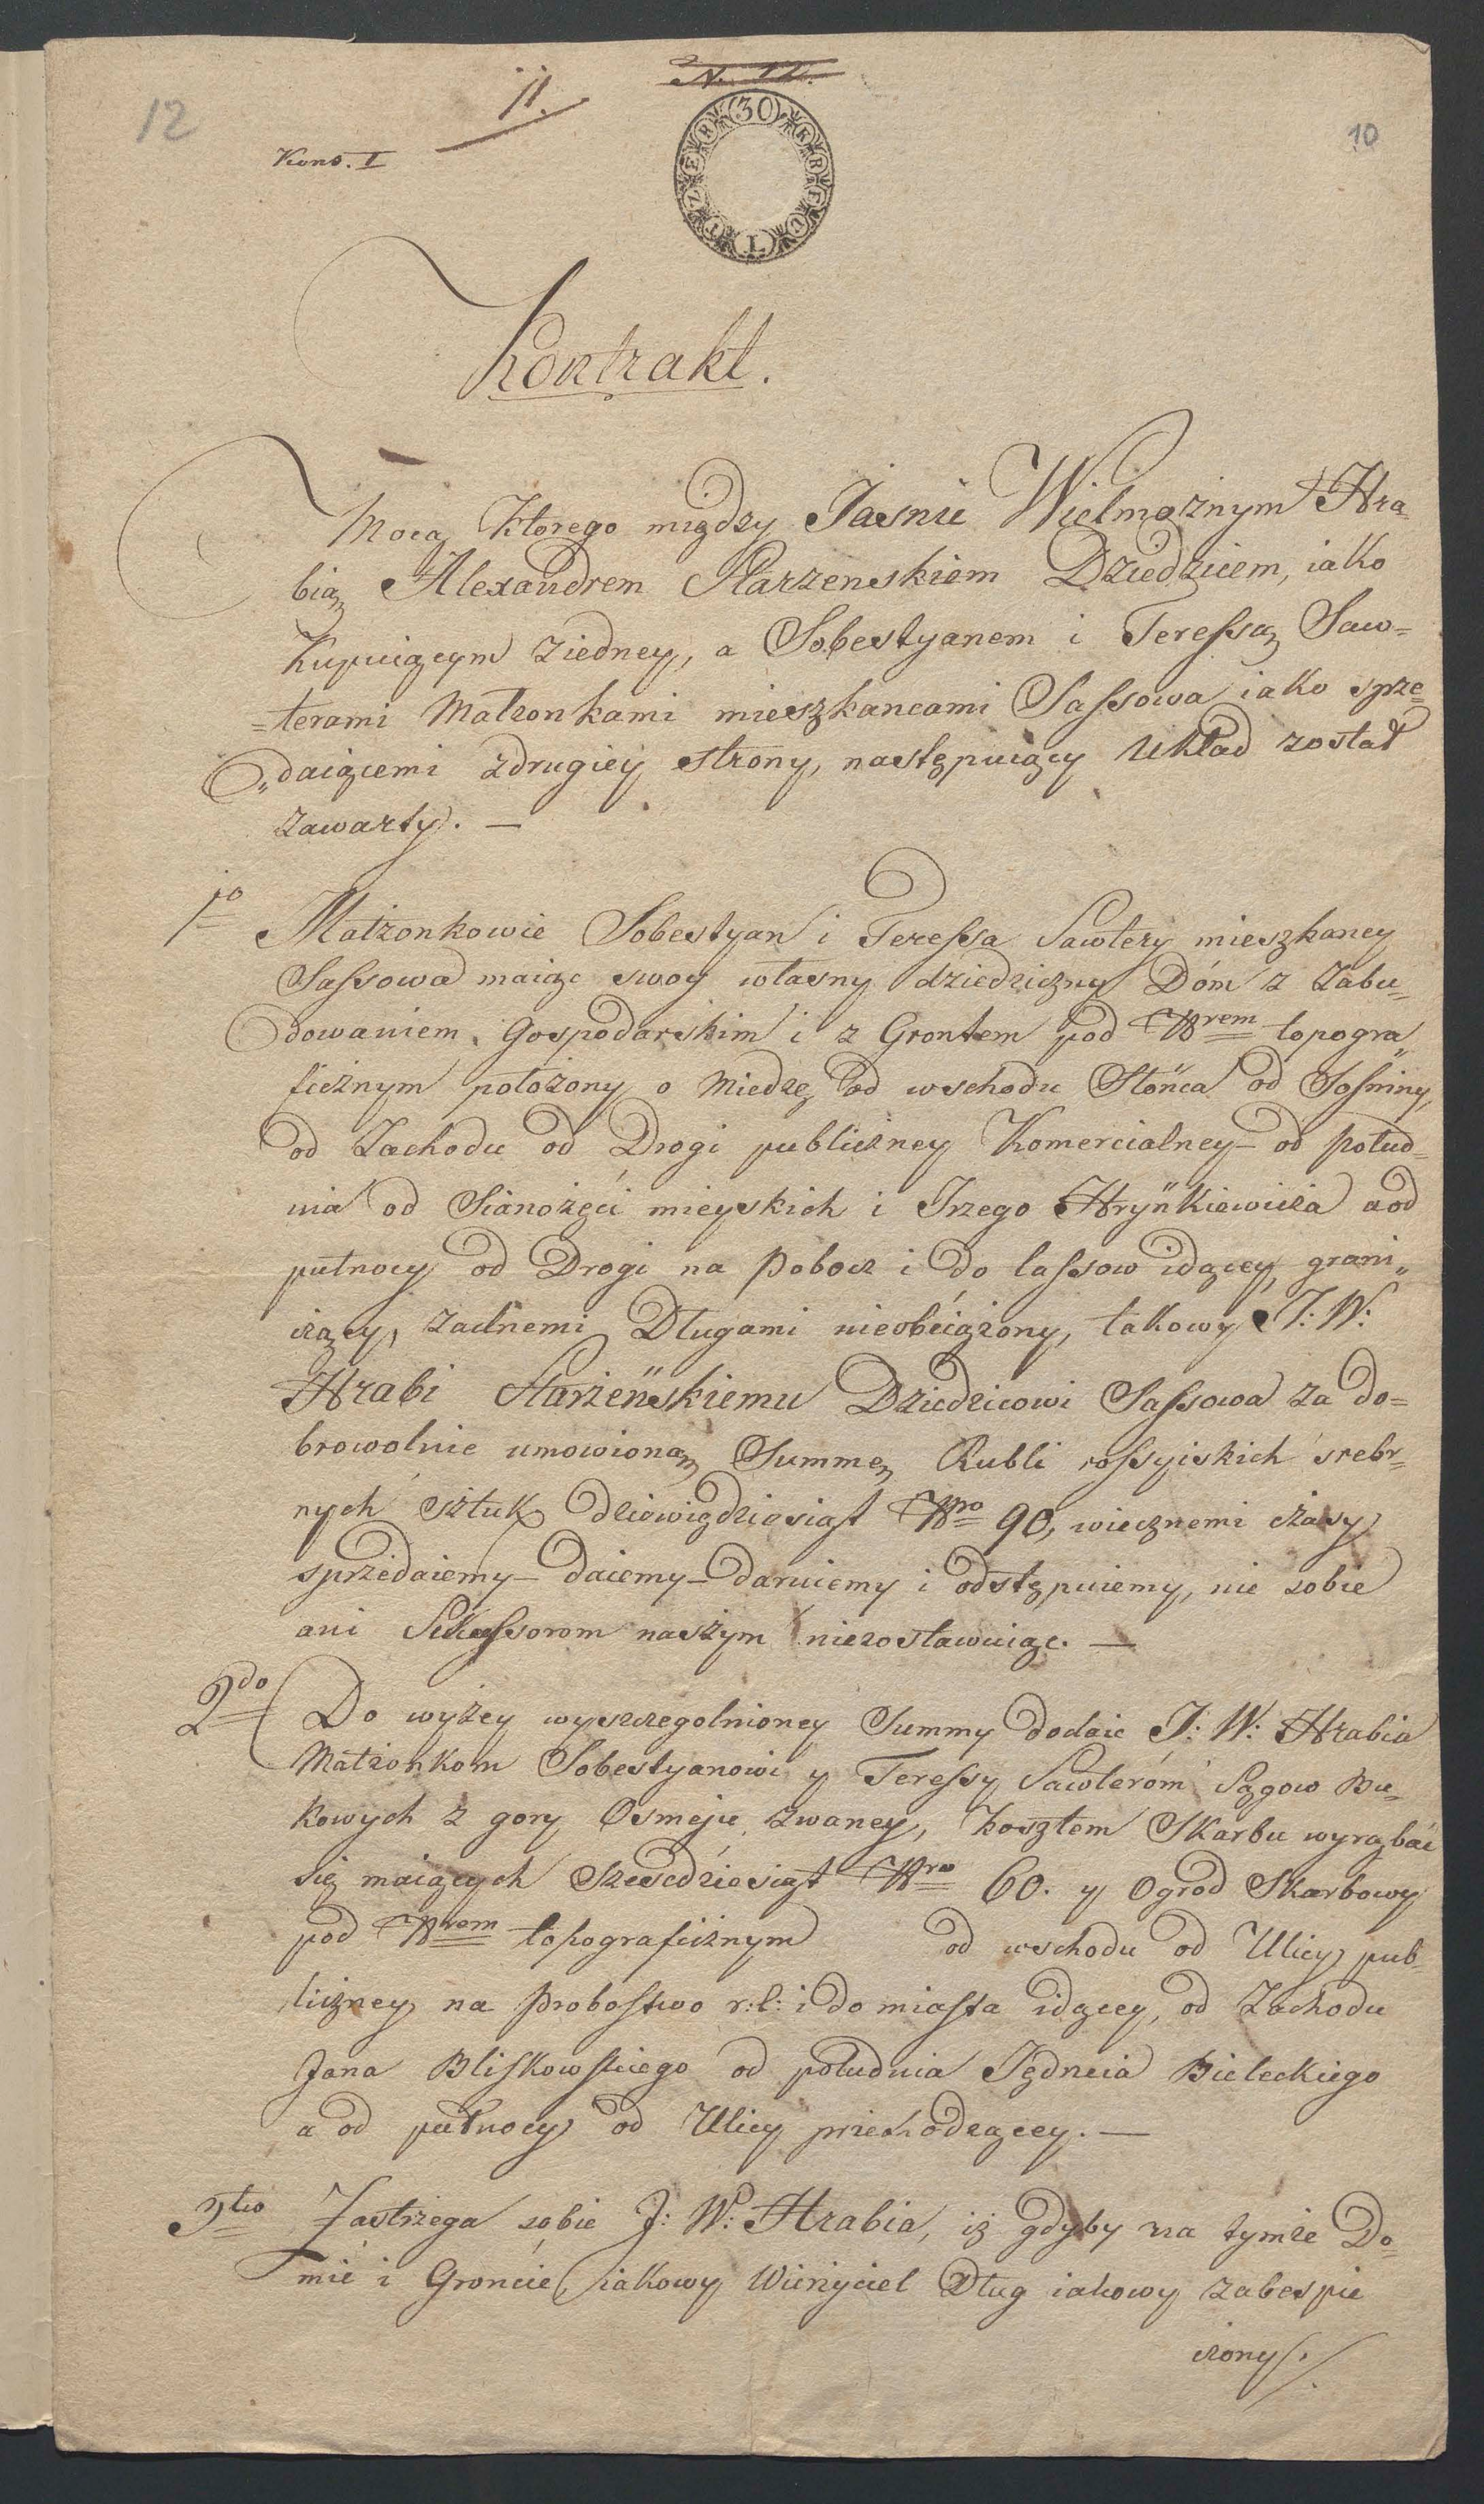 N. 12.
11.
12
10
Kons. I
30 KREUTZER
Kontrakt.
Mocą ktorego między Jasnie Wielmożnym Hra-
bią Alexandrem Starzenskiem Dziedzicem, iako
Kupuiącym ziedney, a Sobestyanem i Teressą Saw=
=terami Małzonkami mieszkancami Sassowa iako sprze=
„daiącemi zdrugiey strony, następuiący Układ został
zawarty. —
1o Małżonkowie Sobestyan i Teressa Sawtery mieszkancy
Sassowa maiąc swoy własny dziedziczny Dóm z Zabu-
dowaniem Gospodarskim i z Grontem pod Nrem topogra„
ficznym położony o Miedzę od wschodu Słońca od Sosniny,
od Zachodu od Drogi publiczney Komercialney – od połud=
nia od Sianożęci mieyskich i Jrzego Hryńkiewicza a od
pułnocy od Drogi na Pobocz i do lassow idącey grani„
czący, zadnemi Długami nieobciążony, takowy J: W:
Hrabi Starzeńskiemu Dziedzicowi Sassowa za do=
browolnie umowioną Summę Rubli rossyiskich srebr=
nych sztuk dziewiędziesiąt Nro 90, wiecznemi czasy
sprzedaiemy – daiemy – daruiemy i odstępuiemy, nie sobie
ani Sukcessorom naszym niezostawuiąc. —
2do Do wyżey wyszczegolnioney Summy dodaie J: W: Hrabia
Małżonkom Sobestyanowi y Teressy Sawterom Sągow Bu-
kowych z gory Osmeju zwaney, kosztem Skarbu wyrąbać
się maiących Szescdziesiąt Nro 60. y Ogrod Skarbowy
pod Nrem topograficznym od wschodu od Ulicy pub-
liczney na Probostwo r:l: i do miasta idącey, od Zachodu
Jana Bliskowskiego od południa Jędrzeia Bieleckiego
a od pułnocy od Ulicy przechodzącey. —
3tio Zastrzega sobie J: W: Hrabia, iż gdyby na tymże Do=
mie i Groncie iakowy Wierzyciel Dług iakowy zabespie
czony /.